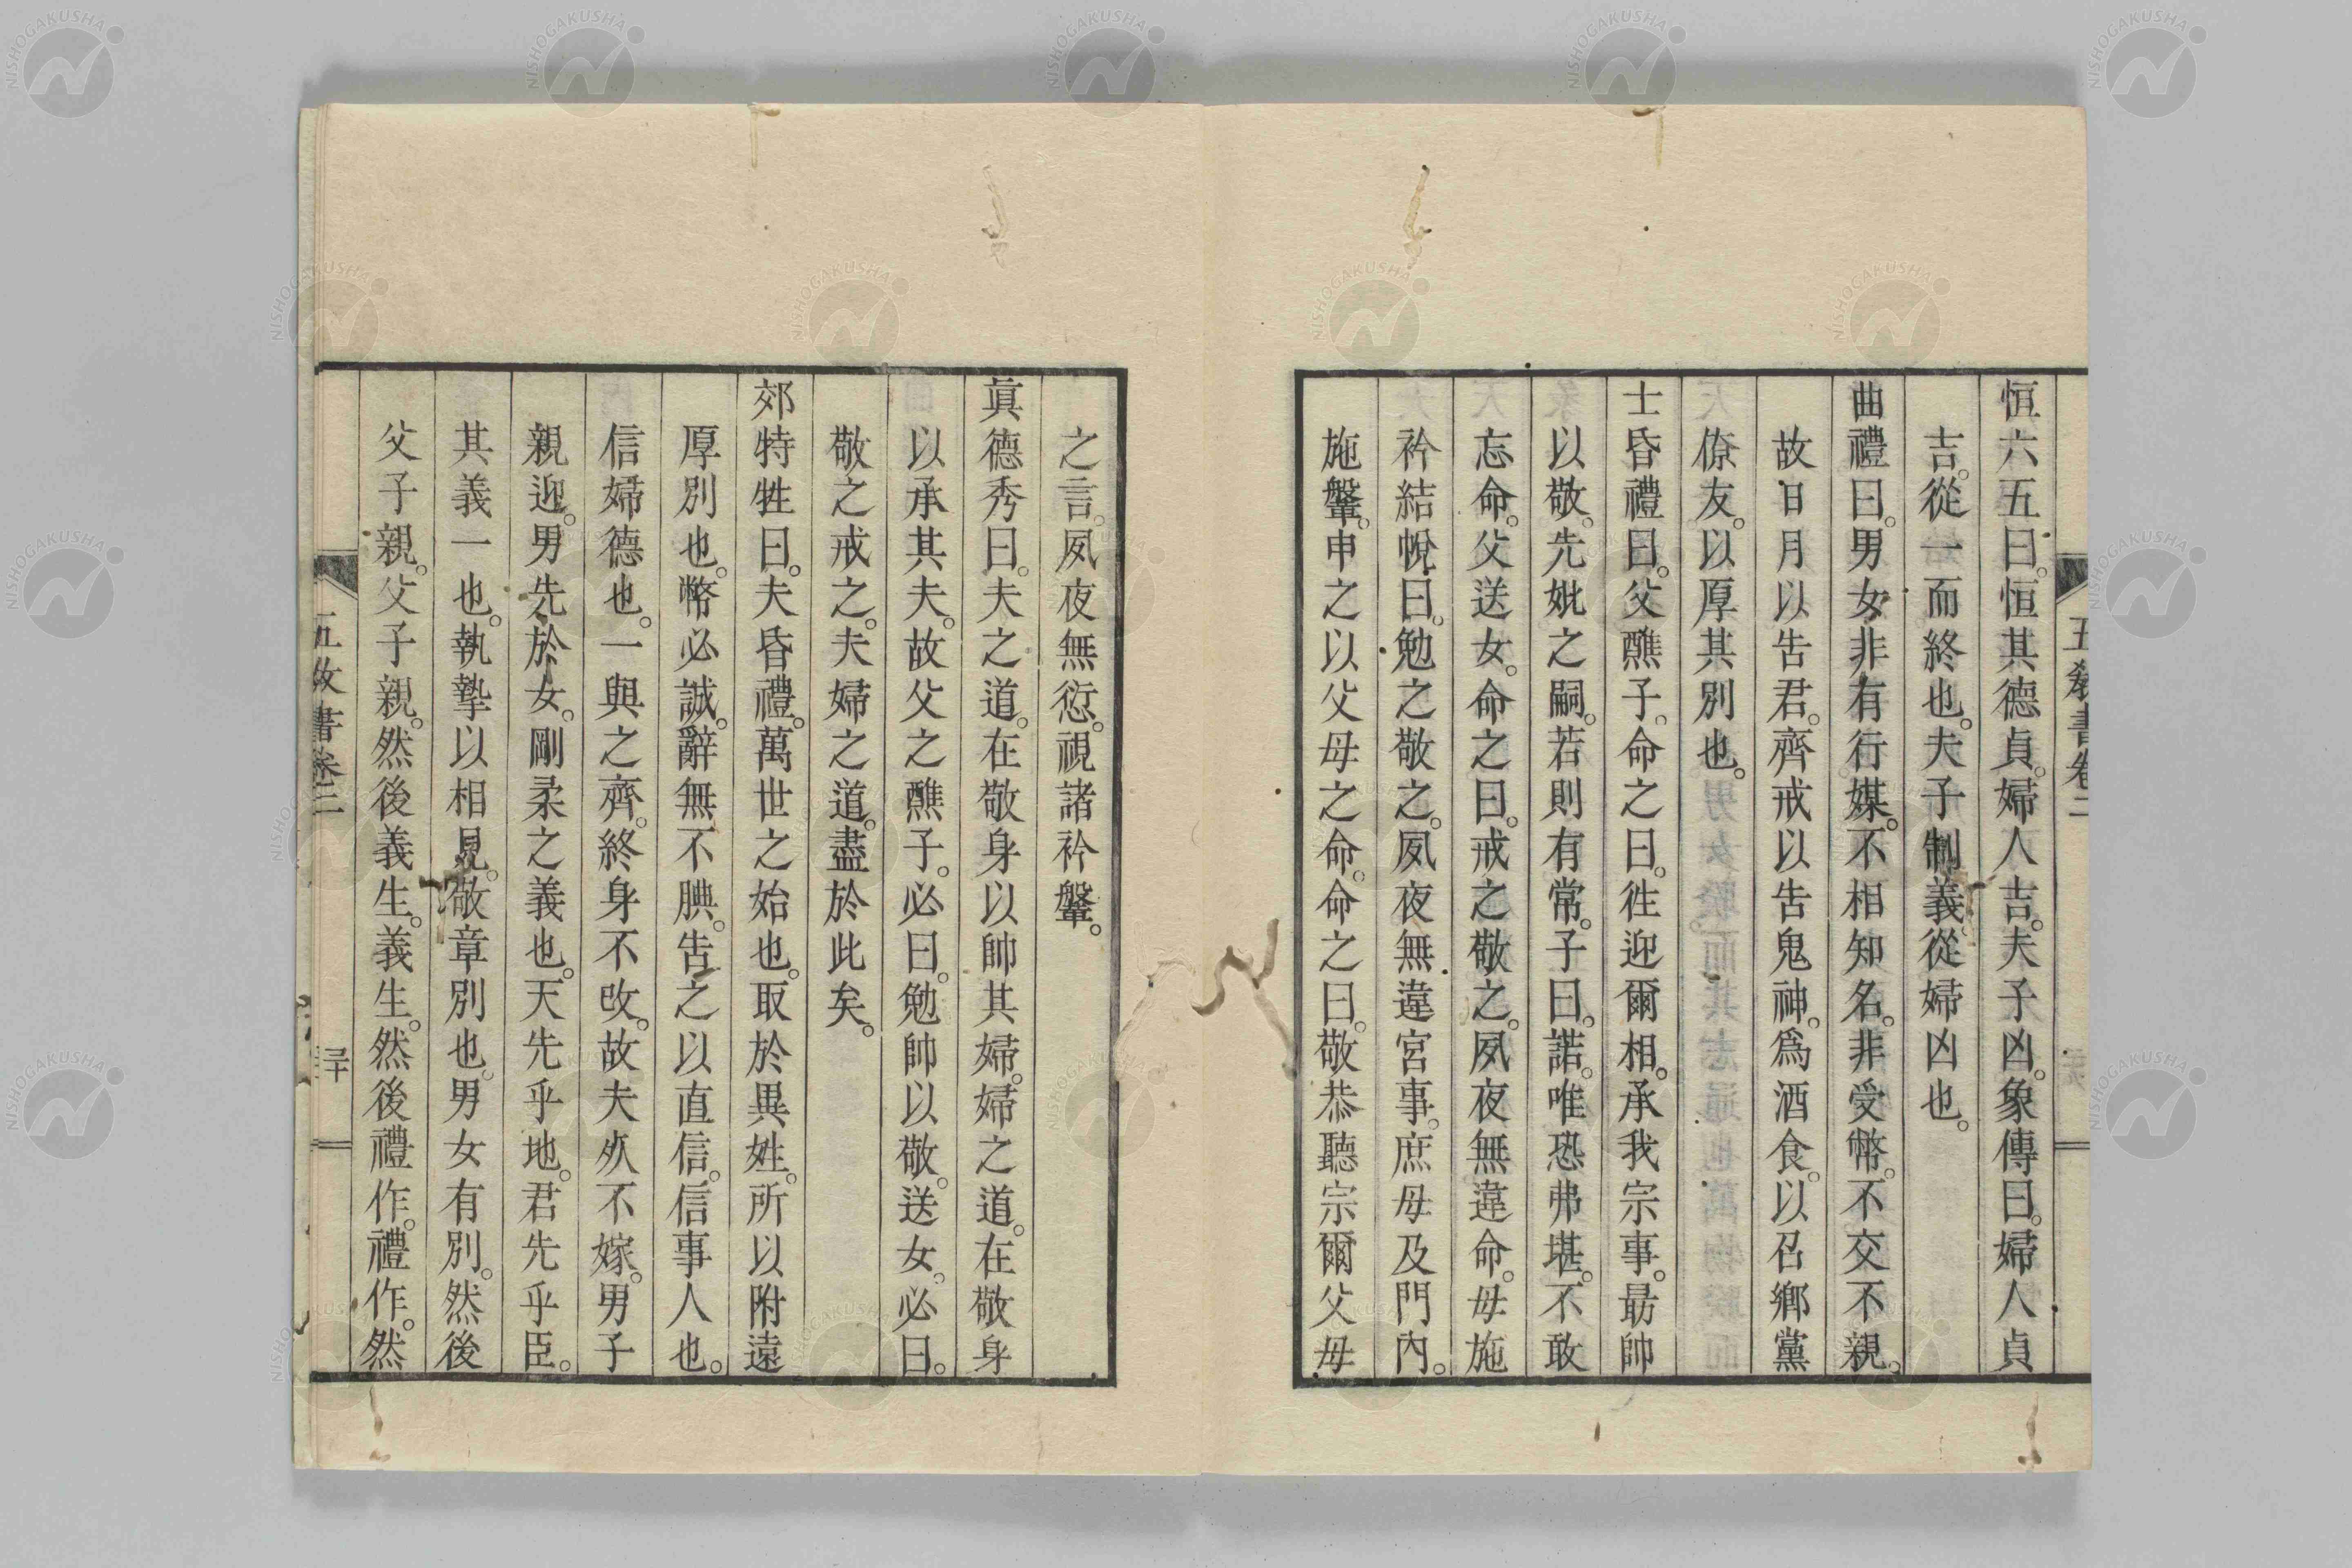 五教書卷二
恒六五曰。恒其德貞。婦人吉。夫子凶。象傳曰。婦人貞
吉。從一而終也。夫子制義。從婦凶也。
曲禮曰。男女非有行媒。不相知名。非受幣。不交不親。
故日月以告君。齊戒以告鬼神。爲酒食。以召鄉黨
僚友。以厚其別也。
士昏禮曰。父醮子。命之曰。徃迎爾相。承我宗事。勗帥
以敬。先妣之嗣。若則有常。子曰。諾。唯恐弗堪。不敢
忘命。父送女。命之曰。戒之敬之。夙夜無違命。母施
衿結帨曰。勉之敬之。夙夜無違宮事。庶母及門內。
施鞶。申之以父母之命。命之曰。敬恭聽宗爾父母
之言。夙夜無愆。視諸衿鞶。
眞德秀曰。夫之道。在敬身以帥其婦。婦之道。在敬身
以承其夫。故父之醮子。必曰。勉帥以敬。送女。必曰。
敬之戒之。夫婦之道。盡於此矣。
郊特牲曰。夫昏禮。萬世之始也。取於異姓。所以附遠
厚別也。幣必誠。辭無不腆。告之以直信。信事人也。
信婦德也。一與之齊。終身不改。故夫死不嫁。男子
親迎。男先於女。剛柔之義也。天先乎地。君先乎臣。
其義一也。執摯以相見。敬章別也。男女有別。然後
父子親。父子親。然後義生。義生。然後禮作。禮作。然
五教書卷二
三十